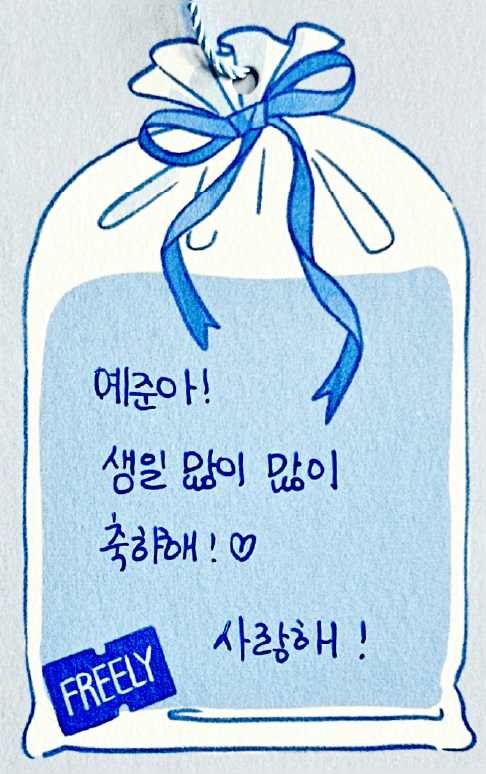 예준아!
생일 많이 많이
축하해!♡
사랑해!
FREELY